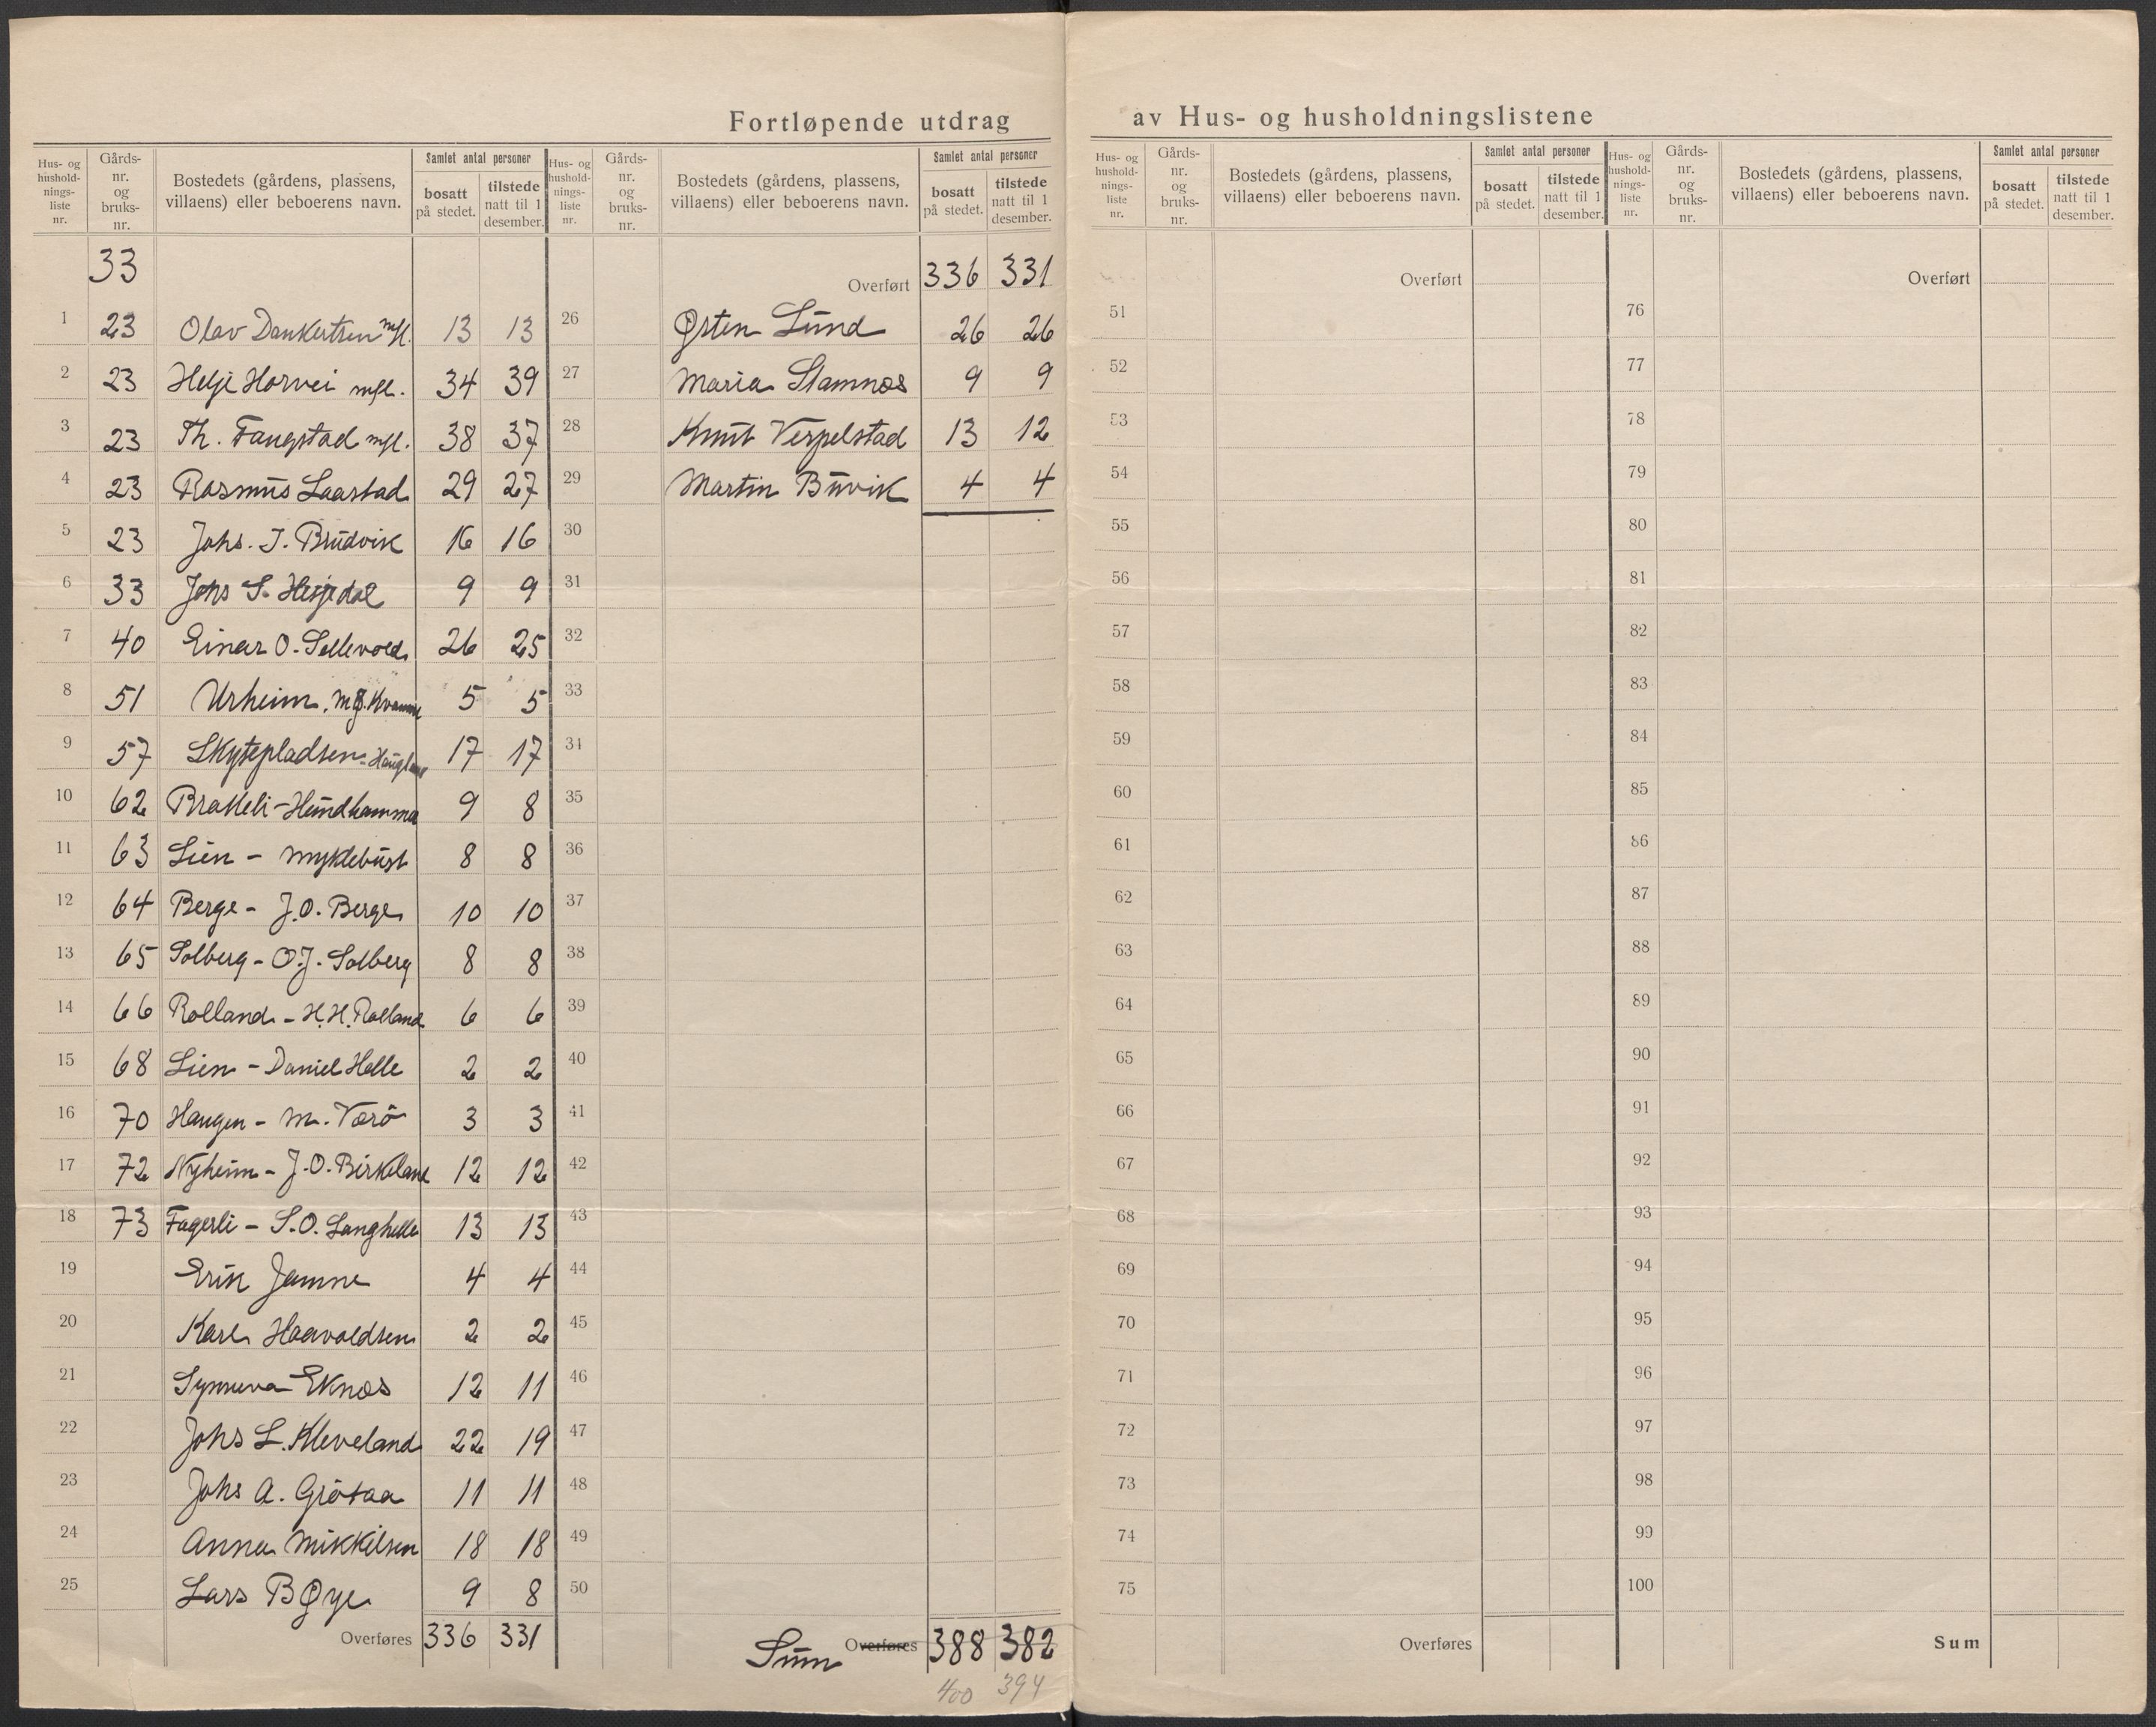 Fortløpende utdrag av Hus- og husholdningslistene
Hus- og hushold-nings-liste nr. Gårds-nr. og bruks-nr. Bostedets (gårdens, plassens, villaens) eller beboerens navn. Samlet antal personer bosatt på stedet. tilstede natt til 1 desember.
33
1 23 Olav Dankertsen mfl. 13 13
2 23 Helje Horvei mfl. 34 39
3 23 Th. Fangstad mfl. 38 37
4 23 Rasmus Laastad 29 27
5 23 Johs. J. Brudvik 16 16
6 33 Johs S. Hesjedal 9 9
7 40 Einar O. Sellevold 26 25
8 51 Urheim. Kvamme 5 5
9 57 Skytepladsen - Haugland 17 17
10 62 Brakeli - Hundhamma 9 8
11 63 Lien - Myklebust 8 8
12 64 Berge - J.O. Berge 10 10
13 65 Solberg - O.J. Solberg 8 8
14 66 Rolland - H.H. Rolland 6 6
15 68 Lien - Daniel Helle 2 2
16 70 Haugen - M. Værö 3 3
17 72 Nyheim - J.O. Birkeland 12 12
18 73 Fagerli - S.O. Langhelle 13 13
19 Erik Jamne 4 4
20 Karl Haavoldsen 2 2
21 Synneva Eknæs 12 11
22 Johs L. Kleveland 22 19
23 Johs A. Grötaa 11 11
24 Anna Mikkelsen 18 18
25 Lars Bøye 9 8
Overføres 336 331
Hus- og hushold-nings-liste nr. Gårds-nr. og bruks-nr. Bostedets (gårdens, plassens, villaens) eller beboerens navn. Samlet antal personer bosatt på stedet. tilstede natt til 1 desember.
Overført 336 331
26 Østen Lund 26 26
27 Maria Stamnæs 9 9
28 Knut Verpelstad 13 12
29 Martin Buvik 4 4
30
31
32
33
34
35
36
37
38
39
40
41
42
43
44
45
46
47
48
49
50
Sum Overføres 388 382
400 394
Hus- og hushold-nings-liste nr. Gårds-nr. og bruks-nr. Bostedets (gårdens, plassens, villaens) eller beboerens navn. Samlet antal personer bosatt på stedet. tilstede natt til 1 desember.
Overført
51
52
53
54
55
56
57
58
59
60
61
62
63
64
65
66
67
68
69
70
71
72
73
74
75
Overføres
Hus- og hushold-nings-liste nr. Gårds-nr. og bruks-nr. Bostedets (gårdens, plassens, villaens) eller beboerens navn. Samlet antal personer bosatt på stedet. tilstede natt til 1 desember.
Overført
76
77
78
79
80
81
82
83
84
85
86
87
88
89
90
91
92
93
94
95
96
97
98
99
100
Sum